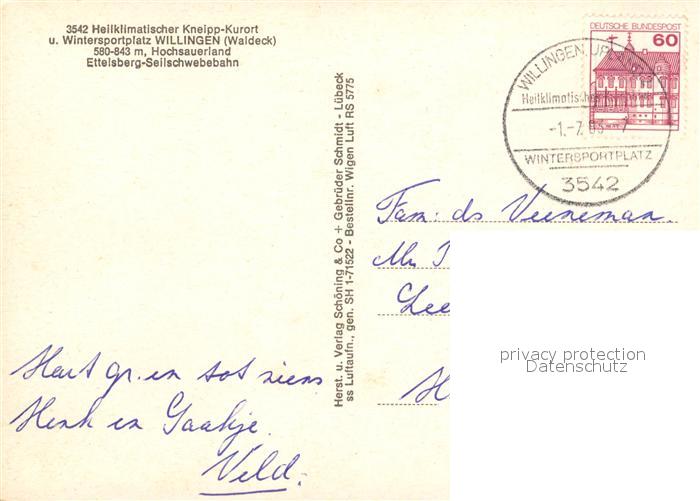 3542 Heilklimatischer Kneipp-Kurort
u. Wintersportplatz WILLINGEN (Waldeck)
580-843 m, Hochsauerland
Ettelsberg-Seilschwebebahn
Herst. u. Verlag Schöning & Co + Gebrüder Schmidt - Lübeck
ss Luftaufn., gen. SH 1-71522 - Bestellnr. Wigen Luft RS 5775
DEUTSCHE BUNDESPOST
60
WILLINGEN, UPLAND
Heilklimatischer
-1.-7.83-7
WINTERSPORTPLATZ
3542
Fam: ds Veeneman.
Lee
H
privacy protection
Datenschutz
Hart gr. en tot ziens
Henk en Gaakje.
Veld.